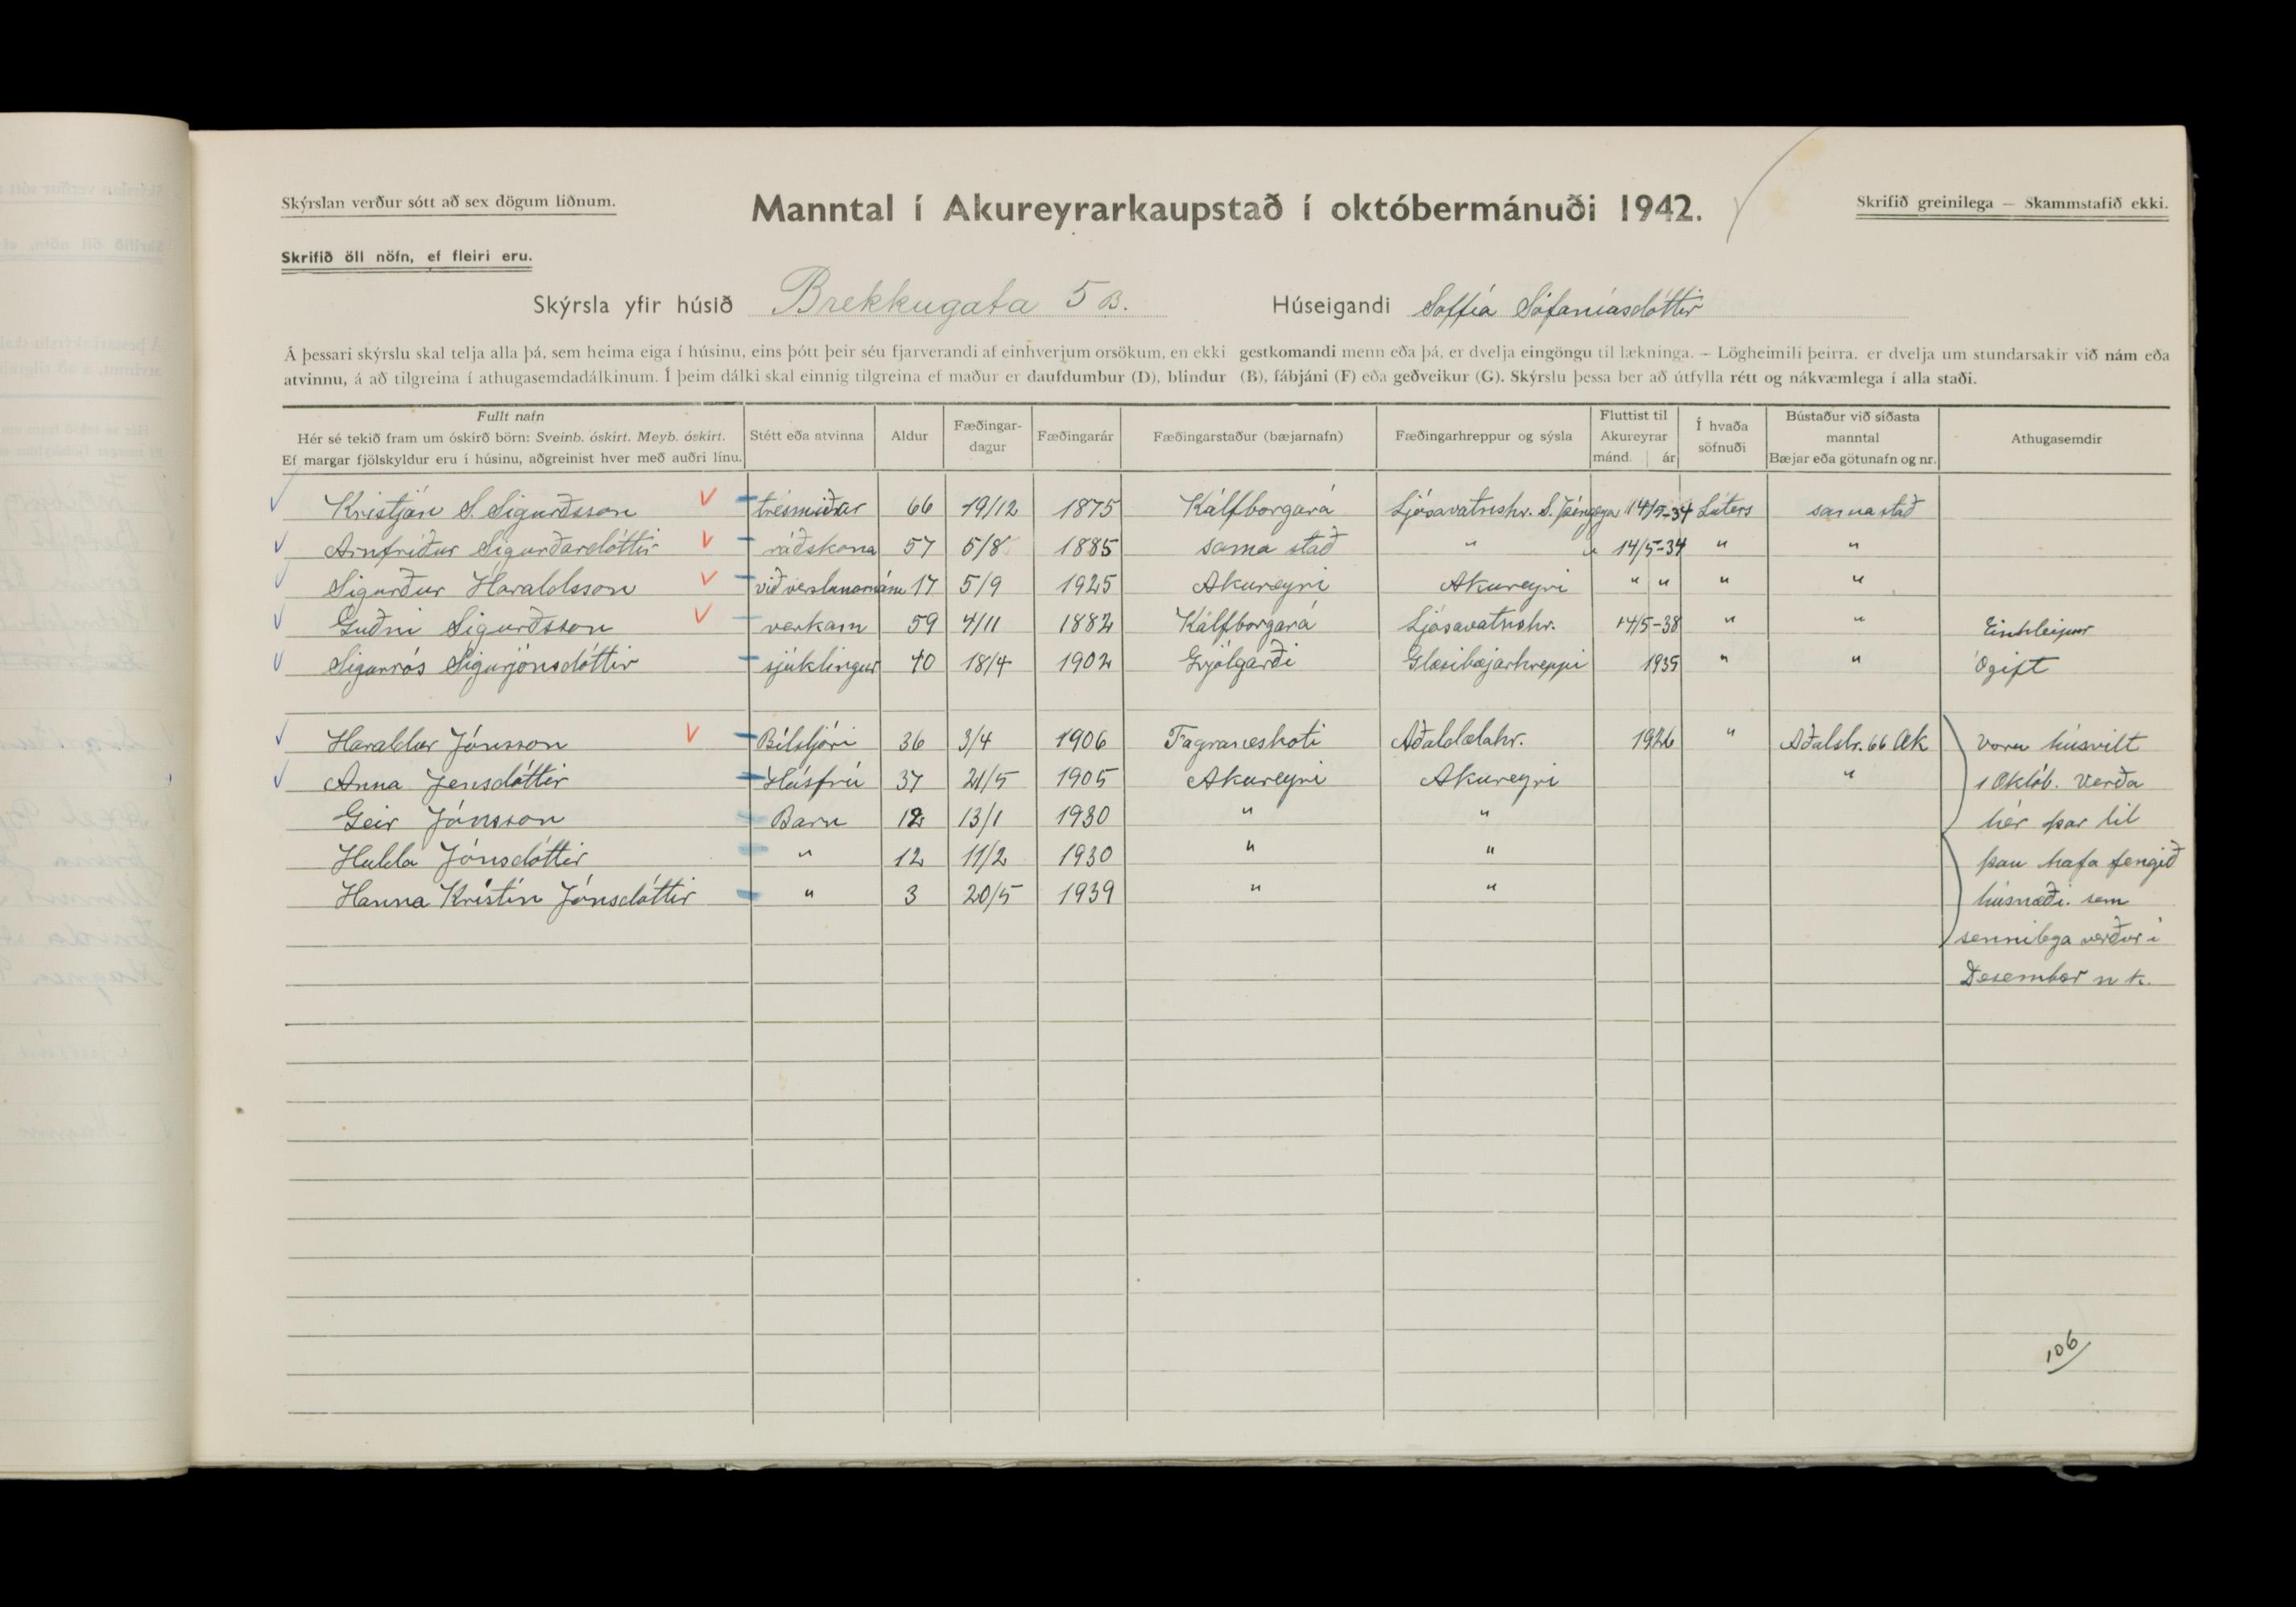 Skýrslan verður sótt að sex dögum liðnum.
Manntal í Akureyrarkaupstað í októbermánuði 1942.
Skrifið greinilega — Skammstafið ekki.
Skrifið öll nöfn, ef fleiri eru.
Skýrsla yfir húsið Brekkugata 5 B. Húseigandi Soffía Sófaníasdóttir
Á þessari skýrslu skal telja alla þá, sem heima eiga í húsinu, eins þótt þeir séu fjarverandi af einhverjum orsökum, en ekki gestkomandi menn eða þá, er dvelja eingöngu til lækninga. — Lögheimili þeirra. er dvelja um stundarsakir við nám eða
atvinnu, á að tilgreina í athugasemdadálkinum. Í þeim dálki skal einnig tilgreina ef maður er daufdumbur (D), blindur (B), fábjáni (F) eða geðveikur (G). Skýrslu þessa ber að útfylla rétt og nákvæmlega í alla staði.
Fullt nafn
Hér sé tekið fram um óskírð börn: Sveinb. óskírt. Meyb. óskírt.
Ef margar fjölskyldur eru í húsinu, aðgreinist hver með auðri línu.
Stétt eða atvinna
Aldur
Fæðingar-
dagur
Fæðingarár
Fæðingarstaður (bæjarnafn)
Fæðingarhreppur og sýsla
Fluttist til
Akureyrar
mánd. ár
Í hvaða
söfnuði
Bústaður við síðasta
manntal
Bæjar eða götunafn og nr.
Athugasemdir
Kristján S. Sigurðsson trésmiðar 66 19/12 1875 Kálfborgará Ljósavatnshr. S. Þingeya 14/5-34 Lúters sama stað
Arnfríður Sigurðardóttir ráðskona 57 5/8 1885 sama stað " " 14/5-34 " "
Sigurður Haraldsson við verslunarnám 17 5/9 1925 Akureyri Akureyri " " " "
Guðni Sigurðsson verkam 59 4/11 1882 Kálfborgará Ljósavatnshr. 14/5-38 " " Einhleipur
Sigurrós Sigurjónsdóttir sjúklingur 40 18/4 1902 Glæsibæjarhreppi 1935 " " Ógift
Haraldur Jónsson Bílstjóri 36 3/4 1906 Fagraneskoti Aðaldælahr. 1926 " Aðalstr. 66 Ak voru húsvilt
Anna Jensdóttir Húsfrú 37 21/5 1905 Akureyri Akureyri " 1 Októb. Verða
Geir Jónsson Barn 12 13/1 1930 " " hér þar til
Hulda Jónsdóttir " 12 11/2 1930 " " þau hafa fengið
Hanna Kristín Jónsdóttir " 3 20/5 1939 " " húsnæði. sem
sennilega verður í
Desember n k.
106